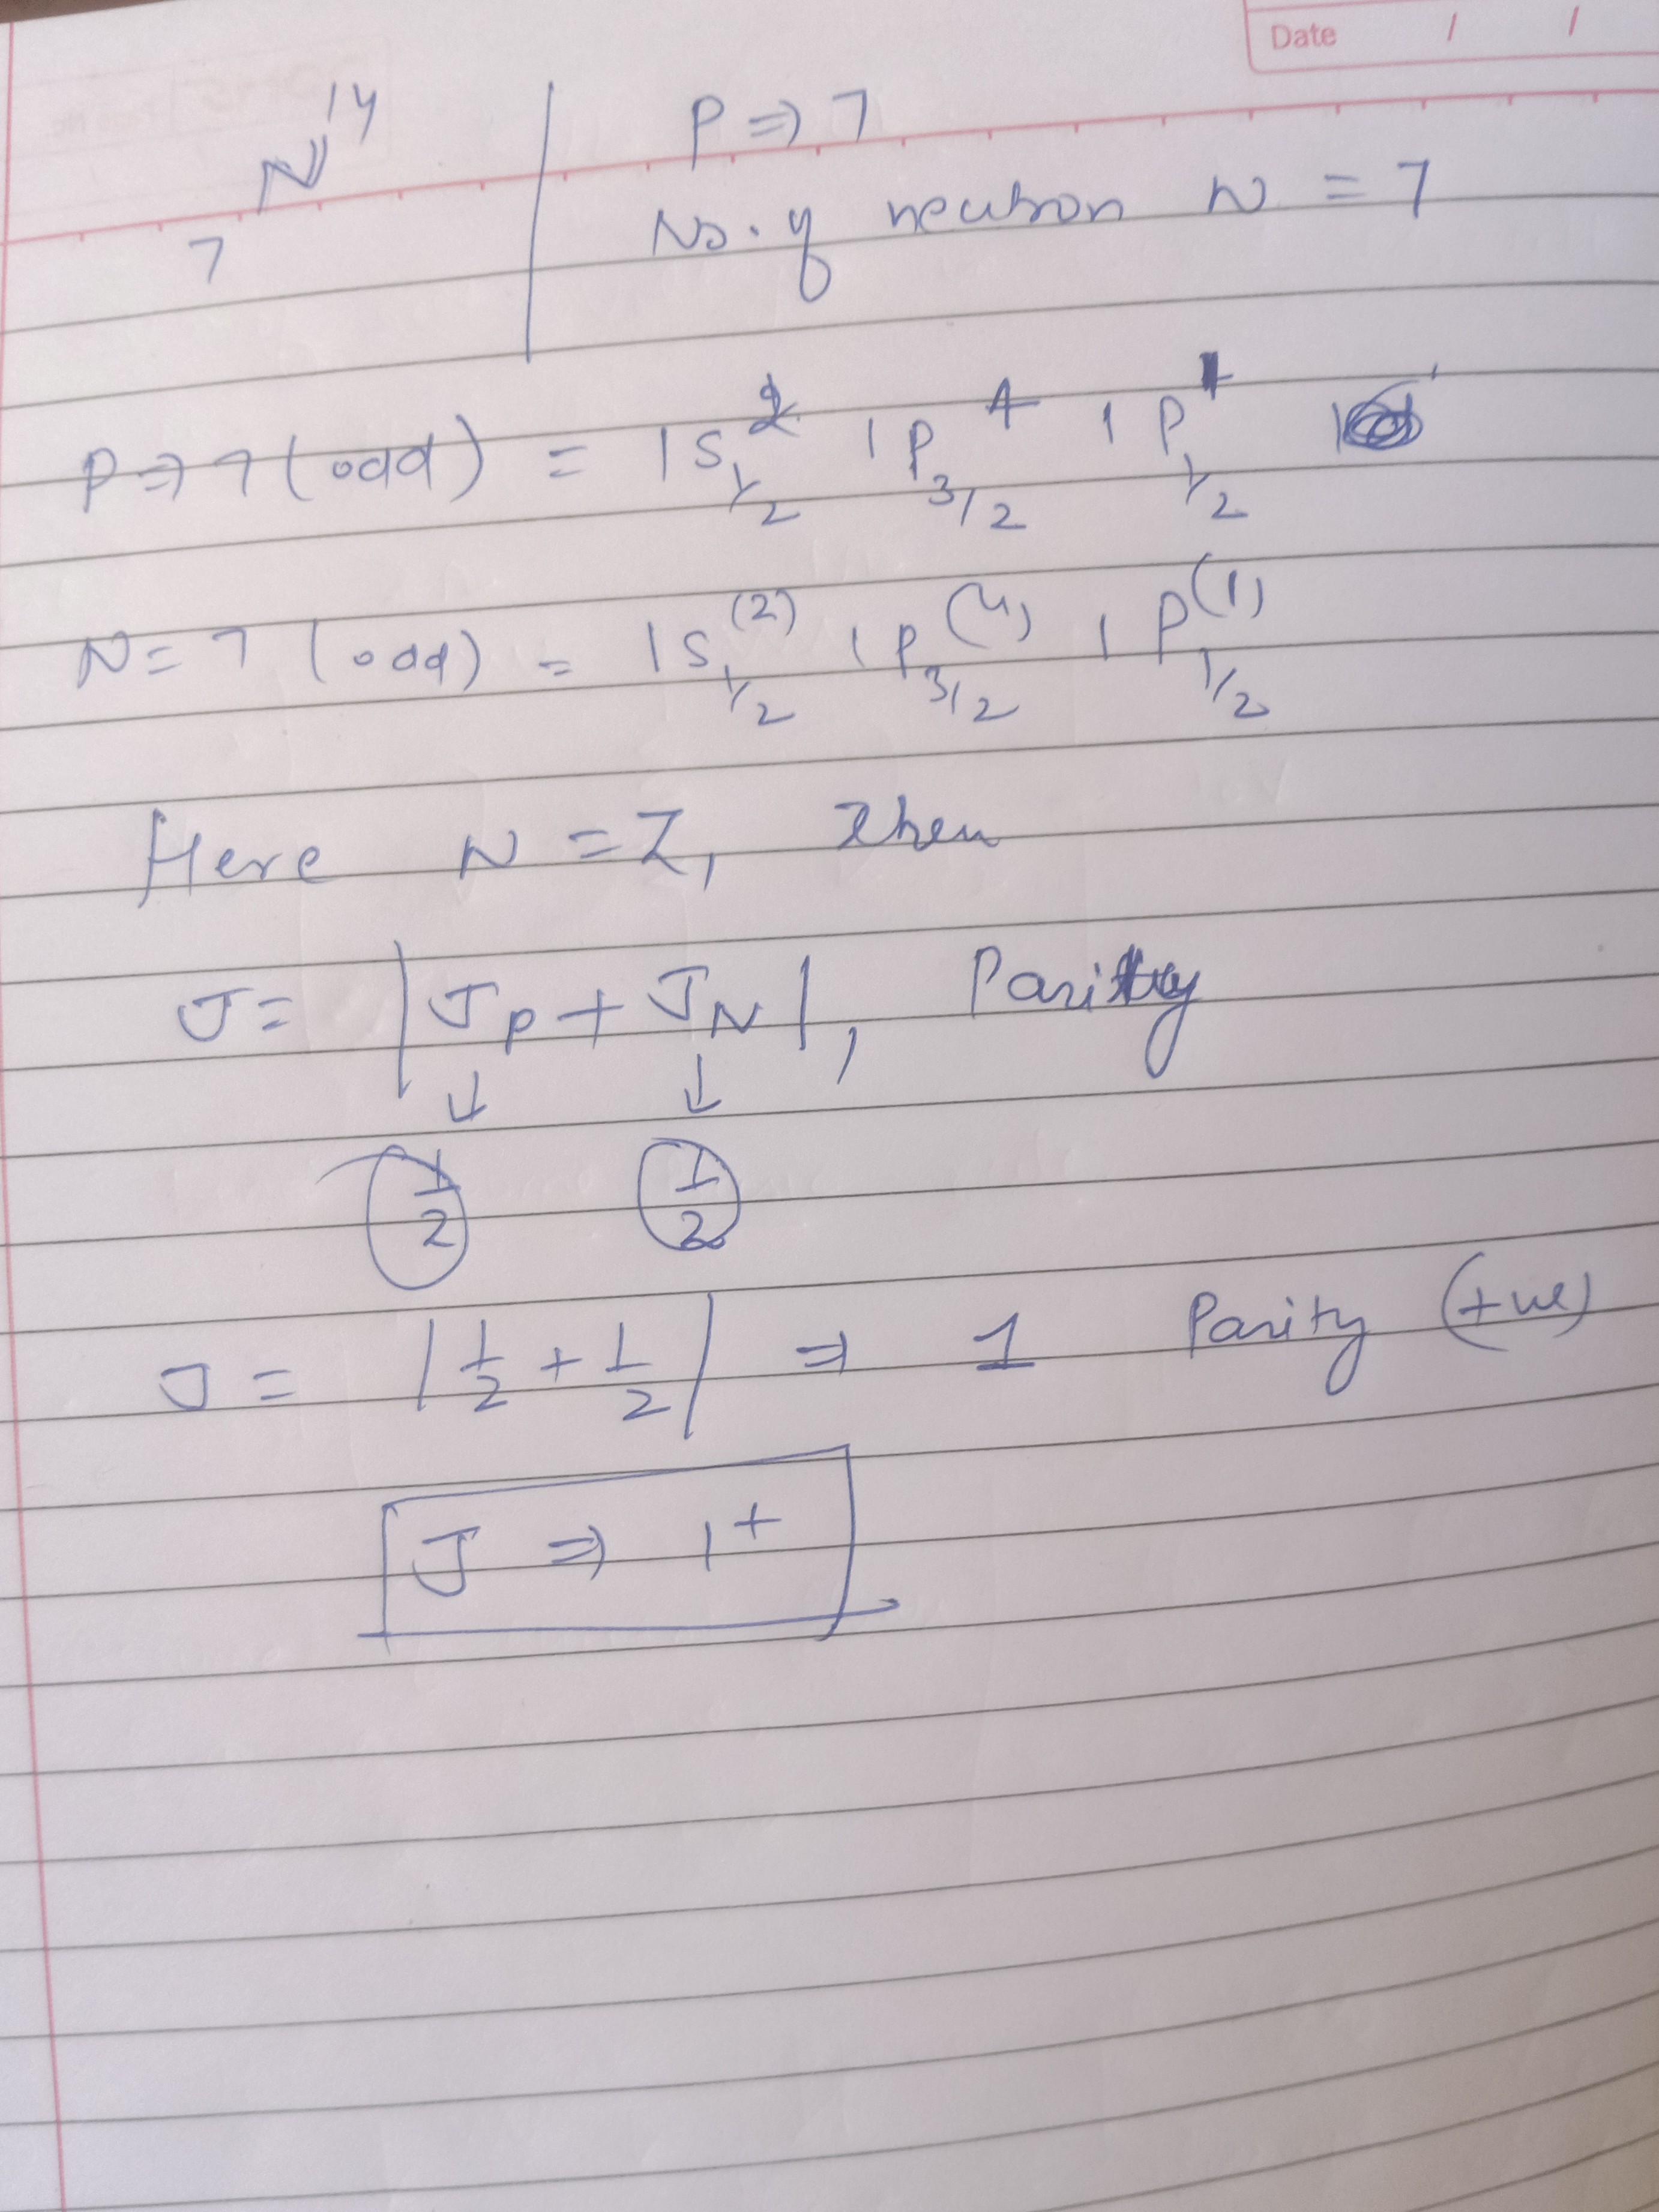 Date / /
₇N¹⁴ | P ⇒ 7
No. of neutron N = 7
P ⇒ 7 (odd) = 1S₁/₂² 1P₃/₂⁴ 1P₁/₂¹
N = 7 (odd) = 1S₁/₂⁽²⁾ 1P₃/₂⁽⁴⁾ 1P₁/₂⁽¹⁾
Here N = Z, then
J = |J_P + J_N|, Parity
↓ ↓
1/2 1/2
J = |1/2 + 1/2| ⇒ 1 Parity (+ve)
J ⇒ 1⁺